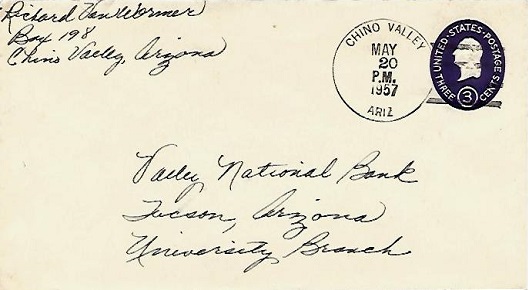 Richard VanWormer
Box 198
Chino Valley, Arizona
CHINO VALLEY
MAY
20
P.M.
1957
ARIZ
UNITED STATES POSTAGE
THREE 3 CENTS
Valley National Bank
Tucson, Arizona
University Branch